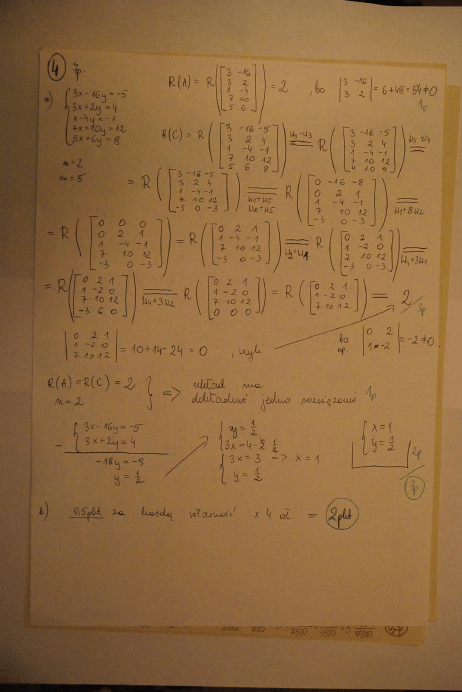 4 7p.
a) { 3x-16y=-5
3x+2y=4
x-4y=-1
7x+10y=12
5x+6y=8
n=2
m=5
R(A) = R([3 -16; 3 2; 1 -4; 7 10; 5 6]) = 2, bo |3 -16; 3 2| = 6+48=54≠0
1p
R(C) = R([3 -16 -5; 3 2 4; 1 -4 -1; 7 10 12; 5 6 8]) = R([3 -16 -5; 3 2 4; 1 -4 -1; 7 10 12; 4 10 9])
= R([3 -16 -5; 3 2 4; 1 -4 -1; 7 10 12; -3 0 -3]) w1+w5 w2+w5 = R([0 -16 -8; 0 2 1; 1 -4 -1; 7 10 12; -3 0 -3]) w1+8w2
= R([0 0 0; 0 2 1; 1 -4 -1; 7 10 12; -3 0 -3]) = R([0 2 1; 1 -4 -1; 7 10 12; -3 0 -3]) = R([0 2 1; 1 -2 0; 7 10 12; -3 0 -3]) w4+3w1
= R([0 2 1; 1 -2 0; 7 10 12; -3 6 0]) w4+3w2 = R([0 2 1; 1 -2 0; 7 10 12; 0 0 0]) = R([0 2 1; 1 -2 0; 7 10 12]) = 2
|0 2 1; 1 -2 0; 7 10 12| = 10+14-24=0, czyli
bo np. |0 2; 1 -2| = -2≠0
R(A)=R(C)=2
n=2 } => układ ma
dokładnie jedno rozwiązanie 1p
- { 3x-16y=-5
3x+2y=4
-18y=-9
y=1/2
{ y=1/2
3x=4-2·1/2
{ 3x=3 -> x=1
y=1/2
{ x=1
y=1/2
2p
7p
b) 0,5pkt za każdą własność x 4 wł. = 2pkt